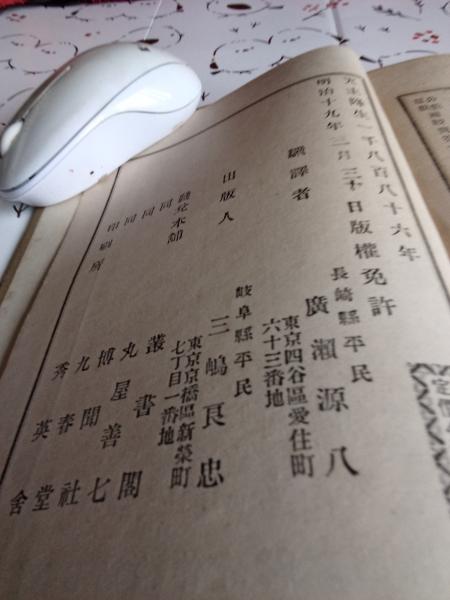 定價
天主降生一千八百八十六年
明治十九年 月 十日版權免許
飜譯者
長崎縣平民
廣瀬源八
東京四谷區愛住町
六十三番地
出版人
岐阜縣平民
三嶋良忠
東京京橋區新榮町
七丁目一番地
發兌本舖 叢書閣
同 丸屋善七
同 博聞社
同 九春堂
印刷所 秀英舍